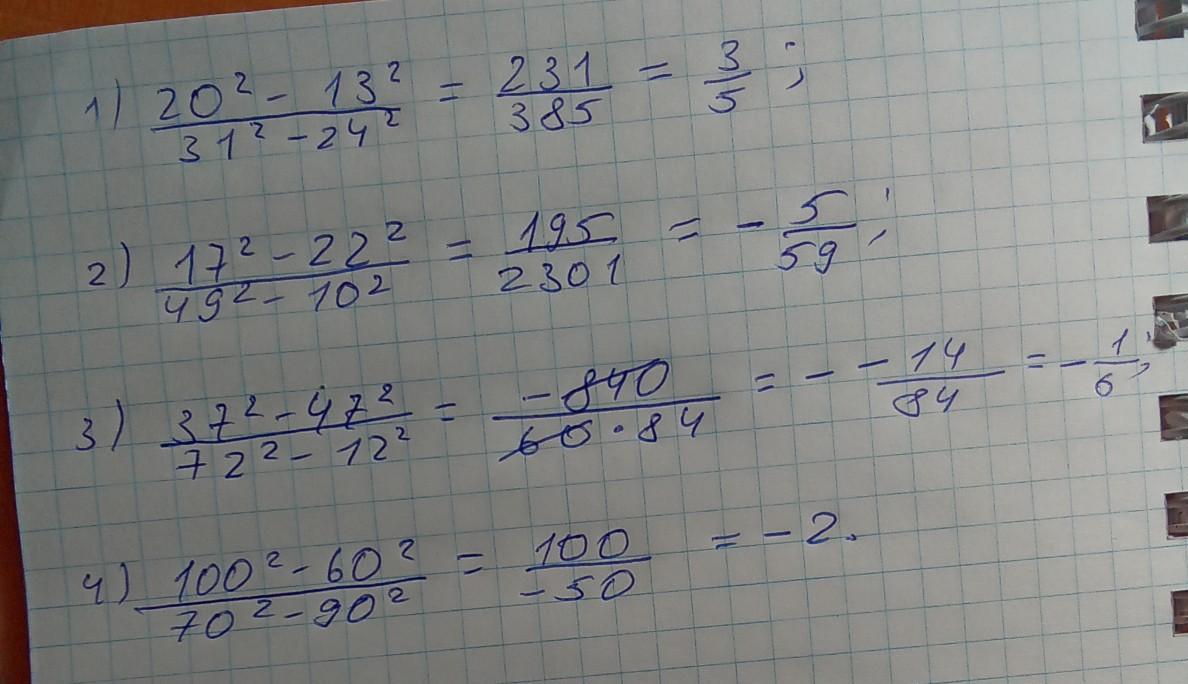 1) (20² - 13²)/(31² - 24²) = 231/385 = 3/5;
2) (17² - 22²)/(49² - 10²) = 195/2301 = - 5/59;
3) (37² - 47²)/(72² - 12²) = -840/(60·84) = - -14/84 = - 1/6;
4) (100² - 60²)/(70² - 90²) = 100/-50 = -2.